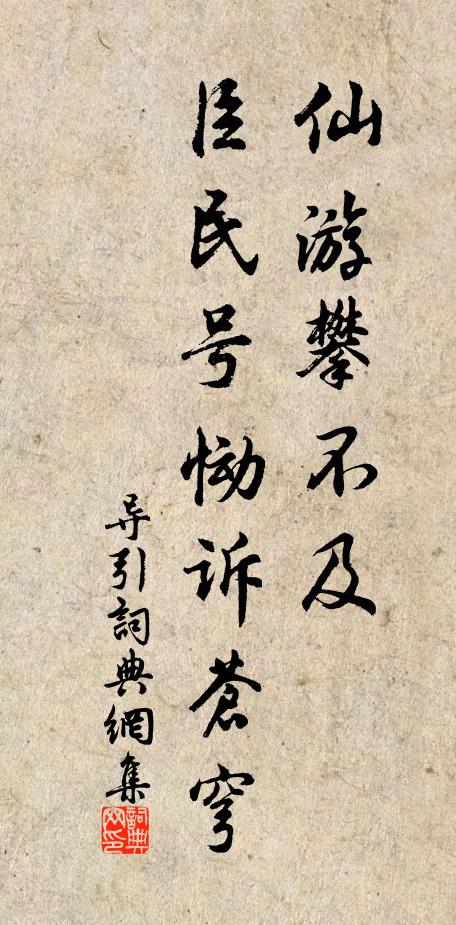 仙游攀不及
臣民号恸诉苍穹
导引詞典網集
詞典網印